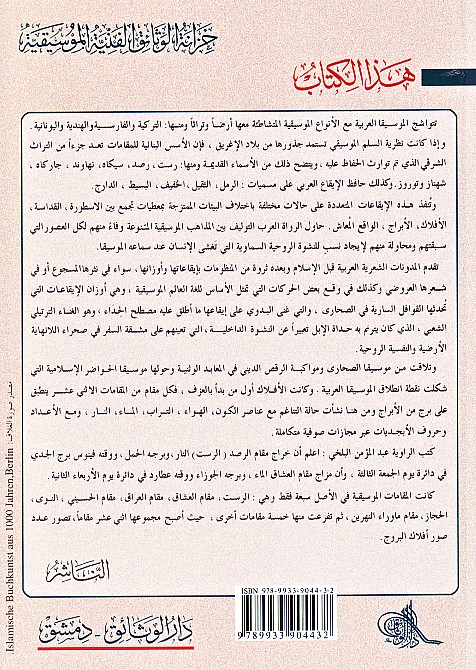 خزانة الوثائق الفنية الموسيقية
هذا الكتاب
تتواشج الموسيقا العربية مع الأنواع الموسيقية المتشاطئة معها أرضاً وتراثاً ومنها: التركية والفارسية والهندية واليونانية.
وإذا كانت نظرية السلم الموسيقي تستمد جذورها من بلاد الإغريق، فإن الأسس البنائية للمقامات تعد جزءاً من التراث
الشرقي الذي تم توارث الحفاظ عليه، ويتضح ذلك من الأسماء القديمة ومنها: رست، رصد، سيكاه، نهاوند، جاركاه،
شهناز ونوروز. وكذلك حافظ الإيقاع العربي على مسميات: الرمل، الثقيل، الخفيف، البسيط، الدارج.
وتُنفذ هذه الإيقاعات المتعددة على حالات مختلفة باختلاف البيئات الممتزجة بمعطيات تجمع بين الاسطورة، القداسة،
الأفلاك، الأبراج، الواقع المعاش. حاول الرواة العرب التوليف بين المذاهب الموسيقية المتنوعة وفاءً منهم لكل العصور التي
سبقتهم ومحاولة منهم لإيجاد نسب للنشوة الروحية السماوية التي تغشى الإنسان عند سماعه الموسيقا.
تقدم المدونات الشعرية العربية قبل الإسلام وبعده ثروة من المنظومات بإيقاعاتها وأوزانها، سواء في نثرها المسجوع أو في
شعرها العروضي وكذلك في وقع بعض الحركات التي تمثل الأساس للغة العالم الموسيقية، وهي أوزان الإيقاعات التي
تُحدثها القوافل السارية في الصحارى، والتي غنى البدوي على إيقاعها ما أطلق عليه مصطلح الحداء، وهو الغناء الترتيلي
الشعبي، الذي كان يترنم به حداة الإبل تعبيراً عن النشوة الداخلية، التي تعينهم على مشقة السفر في صحراء اللانهاية
الأرضية والنفسية الروحية.
وتلاقت من موسيقا الصحارى ومواكبة الرقص الديني في المعابد الوثنية وحولها موسيقا الحواضر الإسلامية التي
شكلت نقطة انطلاق الموسيقا العربية. وكانت الأفلاك أول من بدأ بالعزف، فكل مقام من المقامات الاثني عشر ينطبق
على برج من الأبراج ومن هنا نشأت حالة التناغم مع عناصر الكون، الهواء، التراب، الماء، النار، ومع الأعداد
وحروف الأبجديات عبر مجازات صوفية متكاملة.
كتب الراوية عبد المؤمن البلخي: اعلم أن خراج مقام الرصد (الرست) النار، وبرجه الحمل، ووقته فينوس برج الجدي
في دائرة يوم الجمعة الثالثة، وأن مزاج مقام العشاق الماء، وبرجه الجوزاء ووقته عطارد في دائرة يوم الأربعاء الثانية.
كانت المقامات الموسيقية في الأصل سبعة فقط وهي: الرست، مقام العشاق، مقام العراق، مقام الحسيني، النوى،
الحجاز، مقام ماوراء النهرين، ثم تفرعت منها خمسة مقامات أخرى، حيث أصبح مجموعها اثني عشر مقاماً، تصور عدد
صور أفلاك البروج.
الناشر
دار الوثائق - دمشق
ISBN 978-9933-9044-3-2
9 789933 904432
مصدر صورة الغلاف
Islamische Buchkuntst aus 1000 Jahren,Berlin.